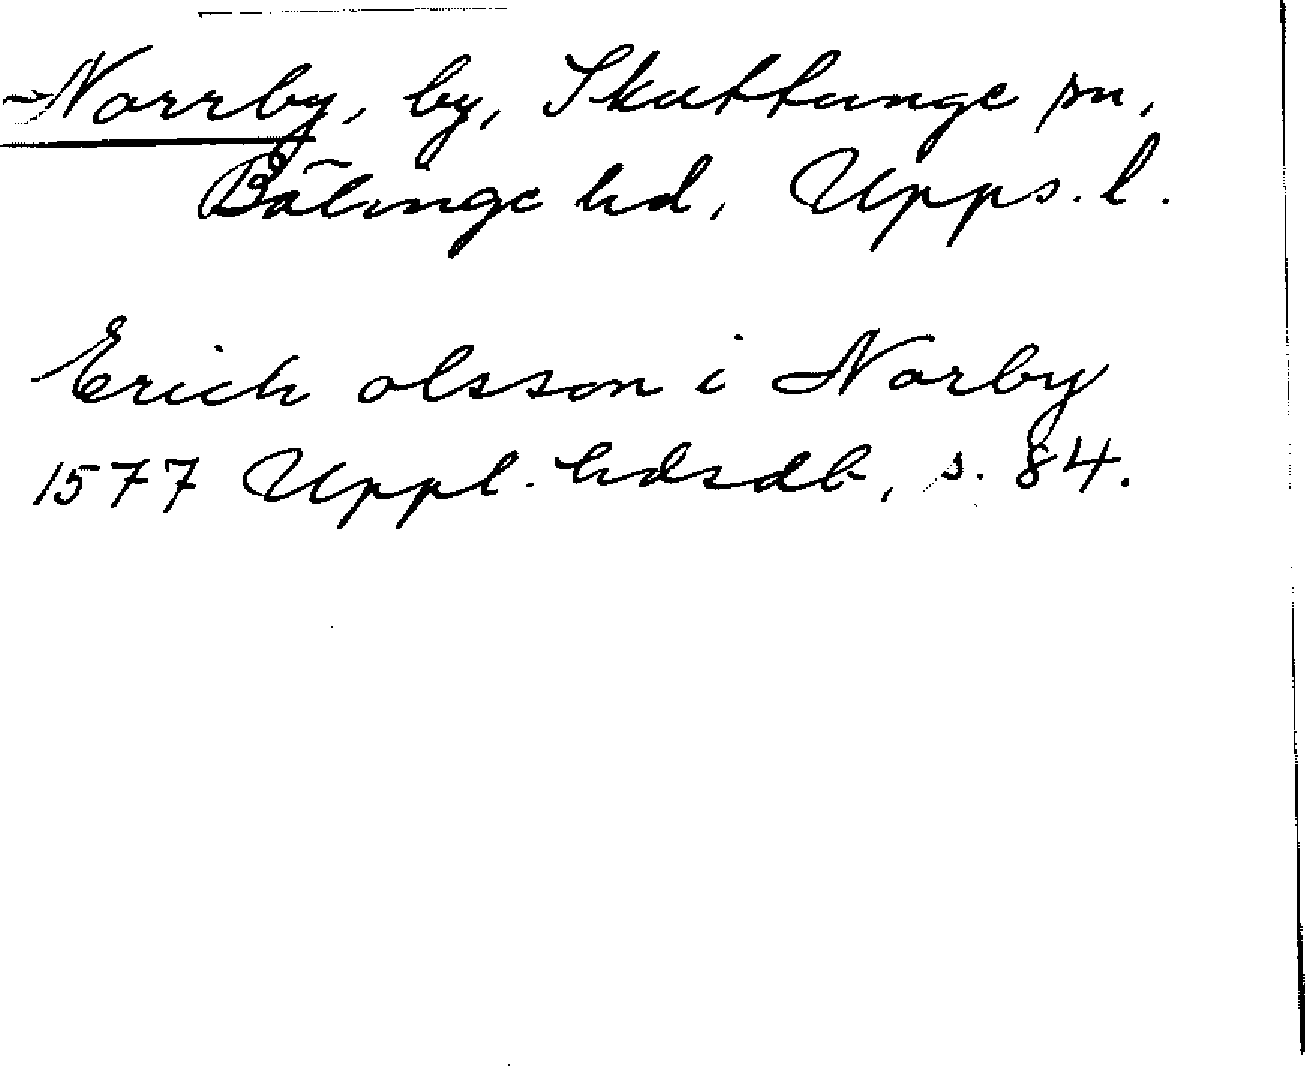 Norrby, by, Skuttunge sn,
Bälinge hd, Upps. l.
Erich olsson i Norby
1577 Uppl. hdsdb, s. 84.